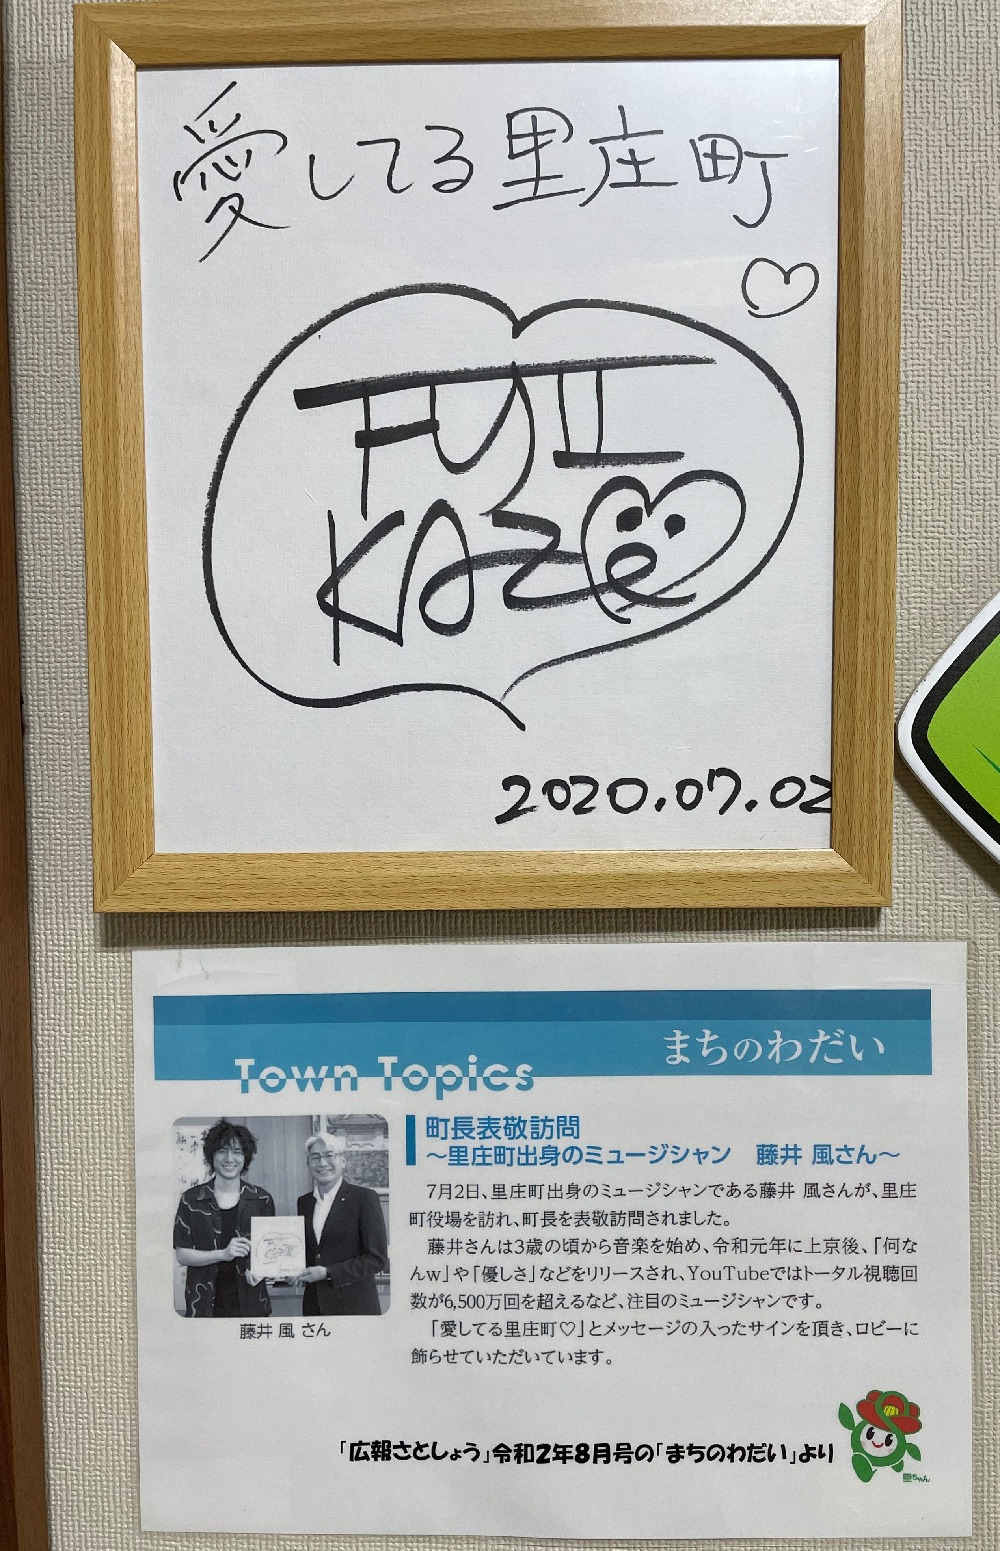 愛してる里庄町♡
FUJII
KAZe
2020.07.02
まちのわだい
Town Topics
町長表敬訪問
～里庄町出身のミュージシャン　藤井 風さん～
7月2日、里庄町出身のミュージシャンである藤井 風さんが、里庄
町役場を訪れ、町長を表敬訪問されました。
藤井さんは3歳の頃から音楽を始め、令和元年に上京後、「何な
んw」や「優しさ」などをリリースされ、YouTubeではトータル視聴回
数が6,500万回を超えるなど、注目のミュージシャンです。
「愛してる里庄町♡」とメッセージの入ったサインを頂き、ロビーに
飾らせていただいています。
藤井 風 さん
「広報さとしょう」令和2年8月号の「まちのわだい」より
里ちゃん